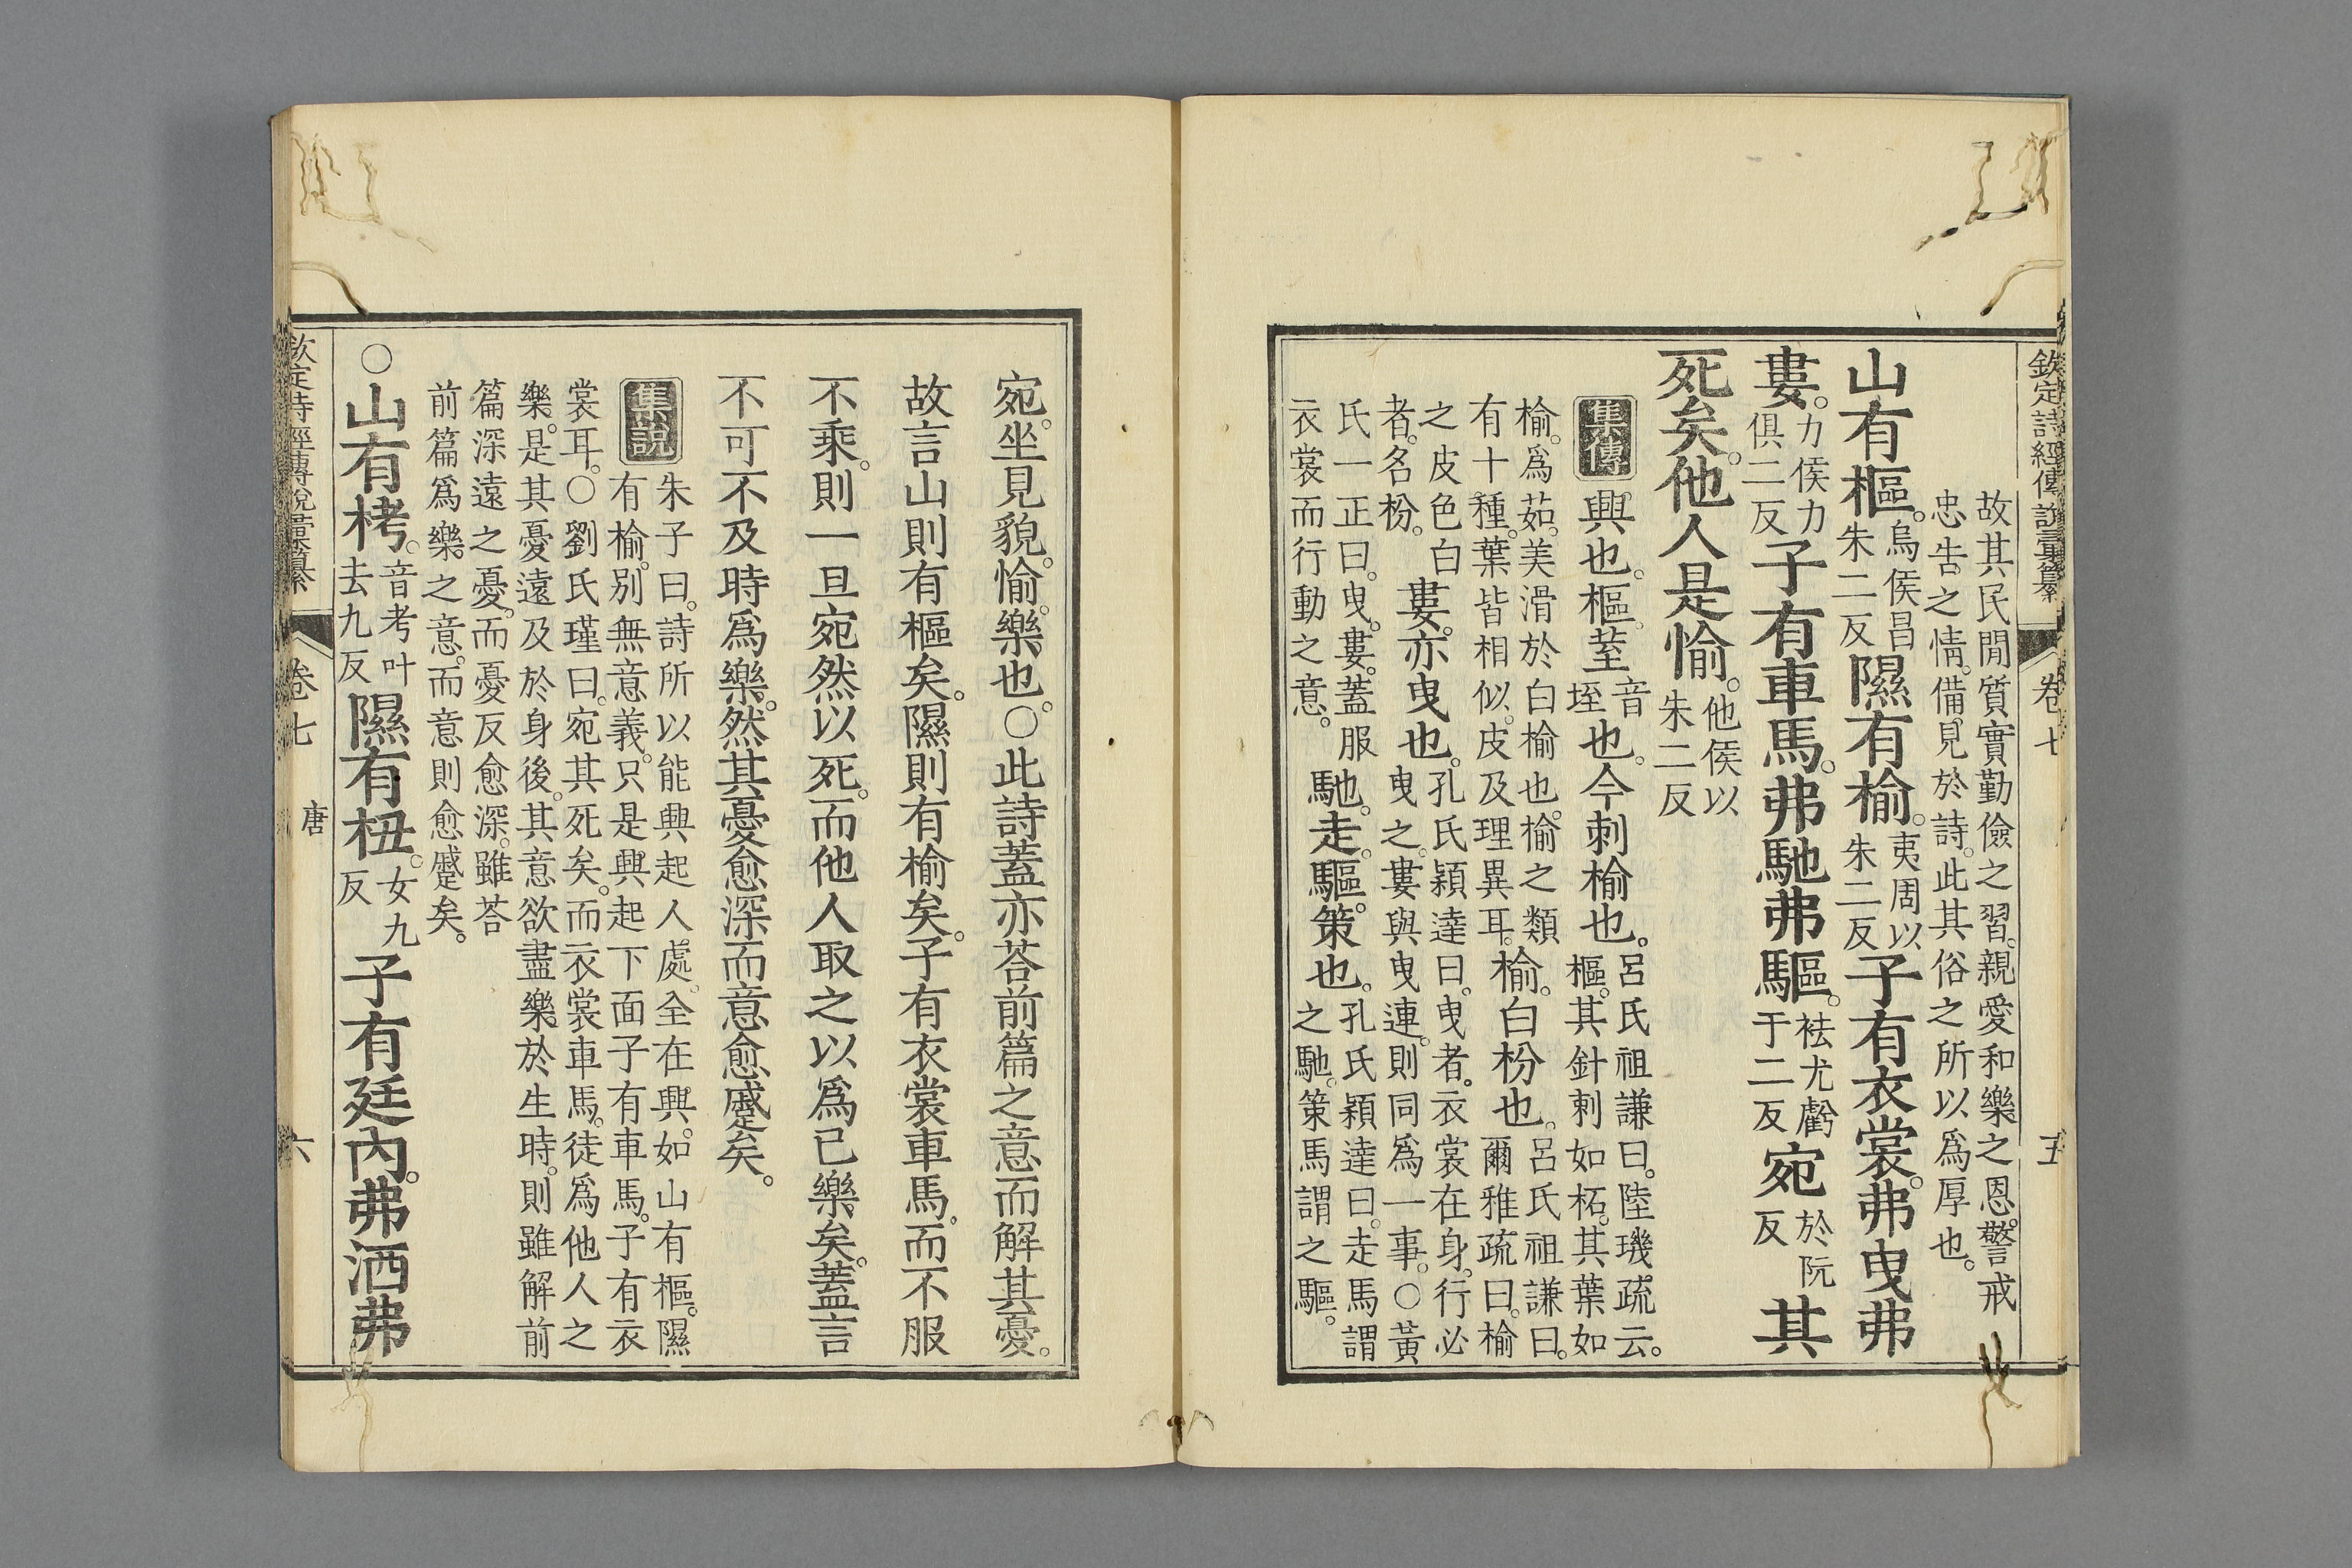 欽定詩經傳說彙纂 卷七 五
故其民閒質實勤儉之習。親愛和樂之恩。警戒
忠吿之情。備見於詩。此其俗之所以爲厚也。
山有樞。烏侯昌朱二反隰有榆。夷周以朱二反子有衣裳。弗曳弗
婁。力侯力俱二反子有車馬。弗馳弗驅。祛尤虧于二反宛於阮反其
死矣。他人是愉。他侯以朱二反
集傳 興也。樞。荎音垤也。今刺榆也。呂氏祖謙曰。陸璣疏云。樞。其針刺如柘。其葉如
榆。爲茹。美滑於白榆也。榆之類有十種。葉皆相似。皮及理異耳。榆。白枌也。呂氏祖謙曰。爾雅疏曰。榆
之皮色白者。名枌。婁。亦曳也。孔氏穎達曰。曳者。衣裳在身。行必曳之。婁與曳連。則同爲一事。○黃
氏一正曰。曳。婁。蓋服衣裳而行動之意。馳。走。驅。策也。孔氏穎達曰。走馬謂之馳。策馬謂之驅。
宛。坐見貌。愉。樂也。○此詩蓋亦荅前篇之意而解其憂。
故言山則有樞矣。隰則有榆矣。子有衣裳車馬。而不服
不乘。則一旦宛然以死。而他人取之以爲己樂矣。蓋言
不可不及時爲樂。然其憂愈深而意愈蹙矣。
集說 朱子曰。詩所以能興起人處。全在興。如山有樞。隰
有榆。別無意義。只是興起下面子有車馬。子有衣
裳耳。○劉氏瑾曰。宛其死矣。而衣裳車馬。徒爲他人之
樂。是其憂遠及於身後。其意欲盡樂於生時。則雖解前
篇深遠之憂。而憂反愈深。雖荅
前篇爲樂之意。而意則愈蹙矣。
○山有栲。音考叶去九反隰有杻。女九反子有廷內。弗洒弗
欽定詩經傳說彙纂 卷七 唐 六